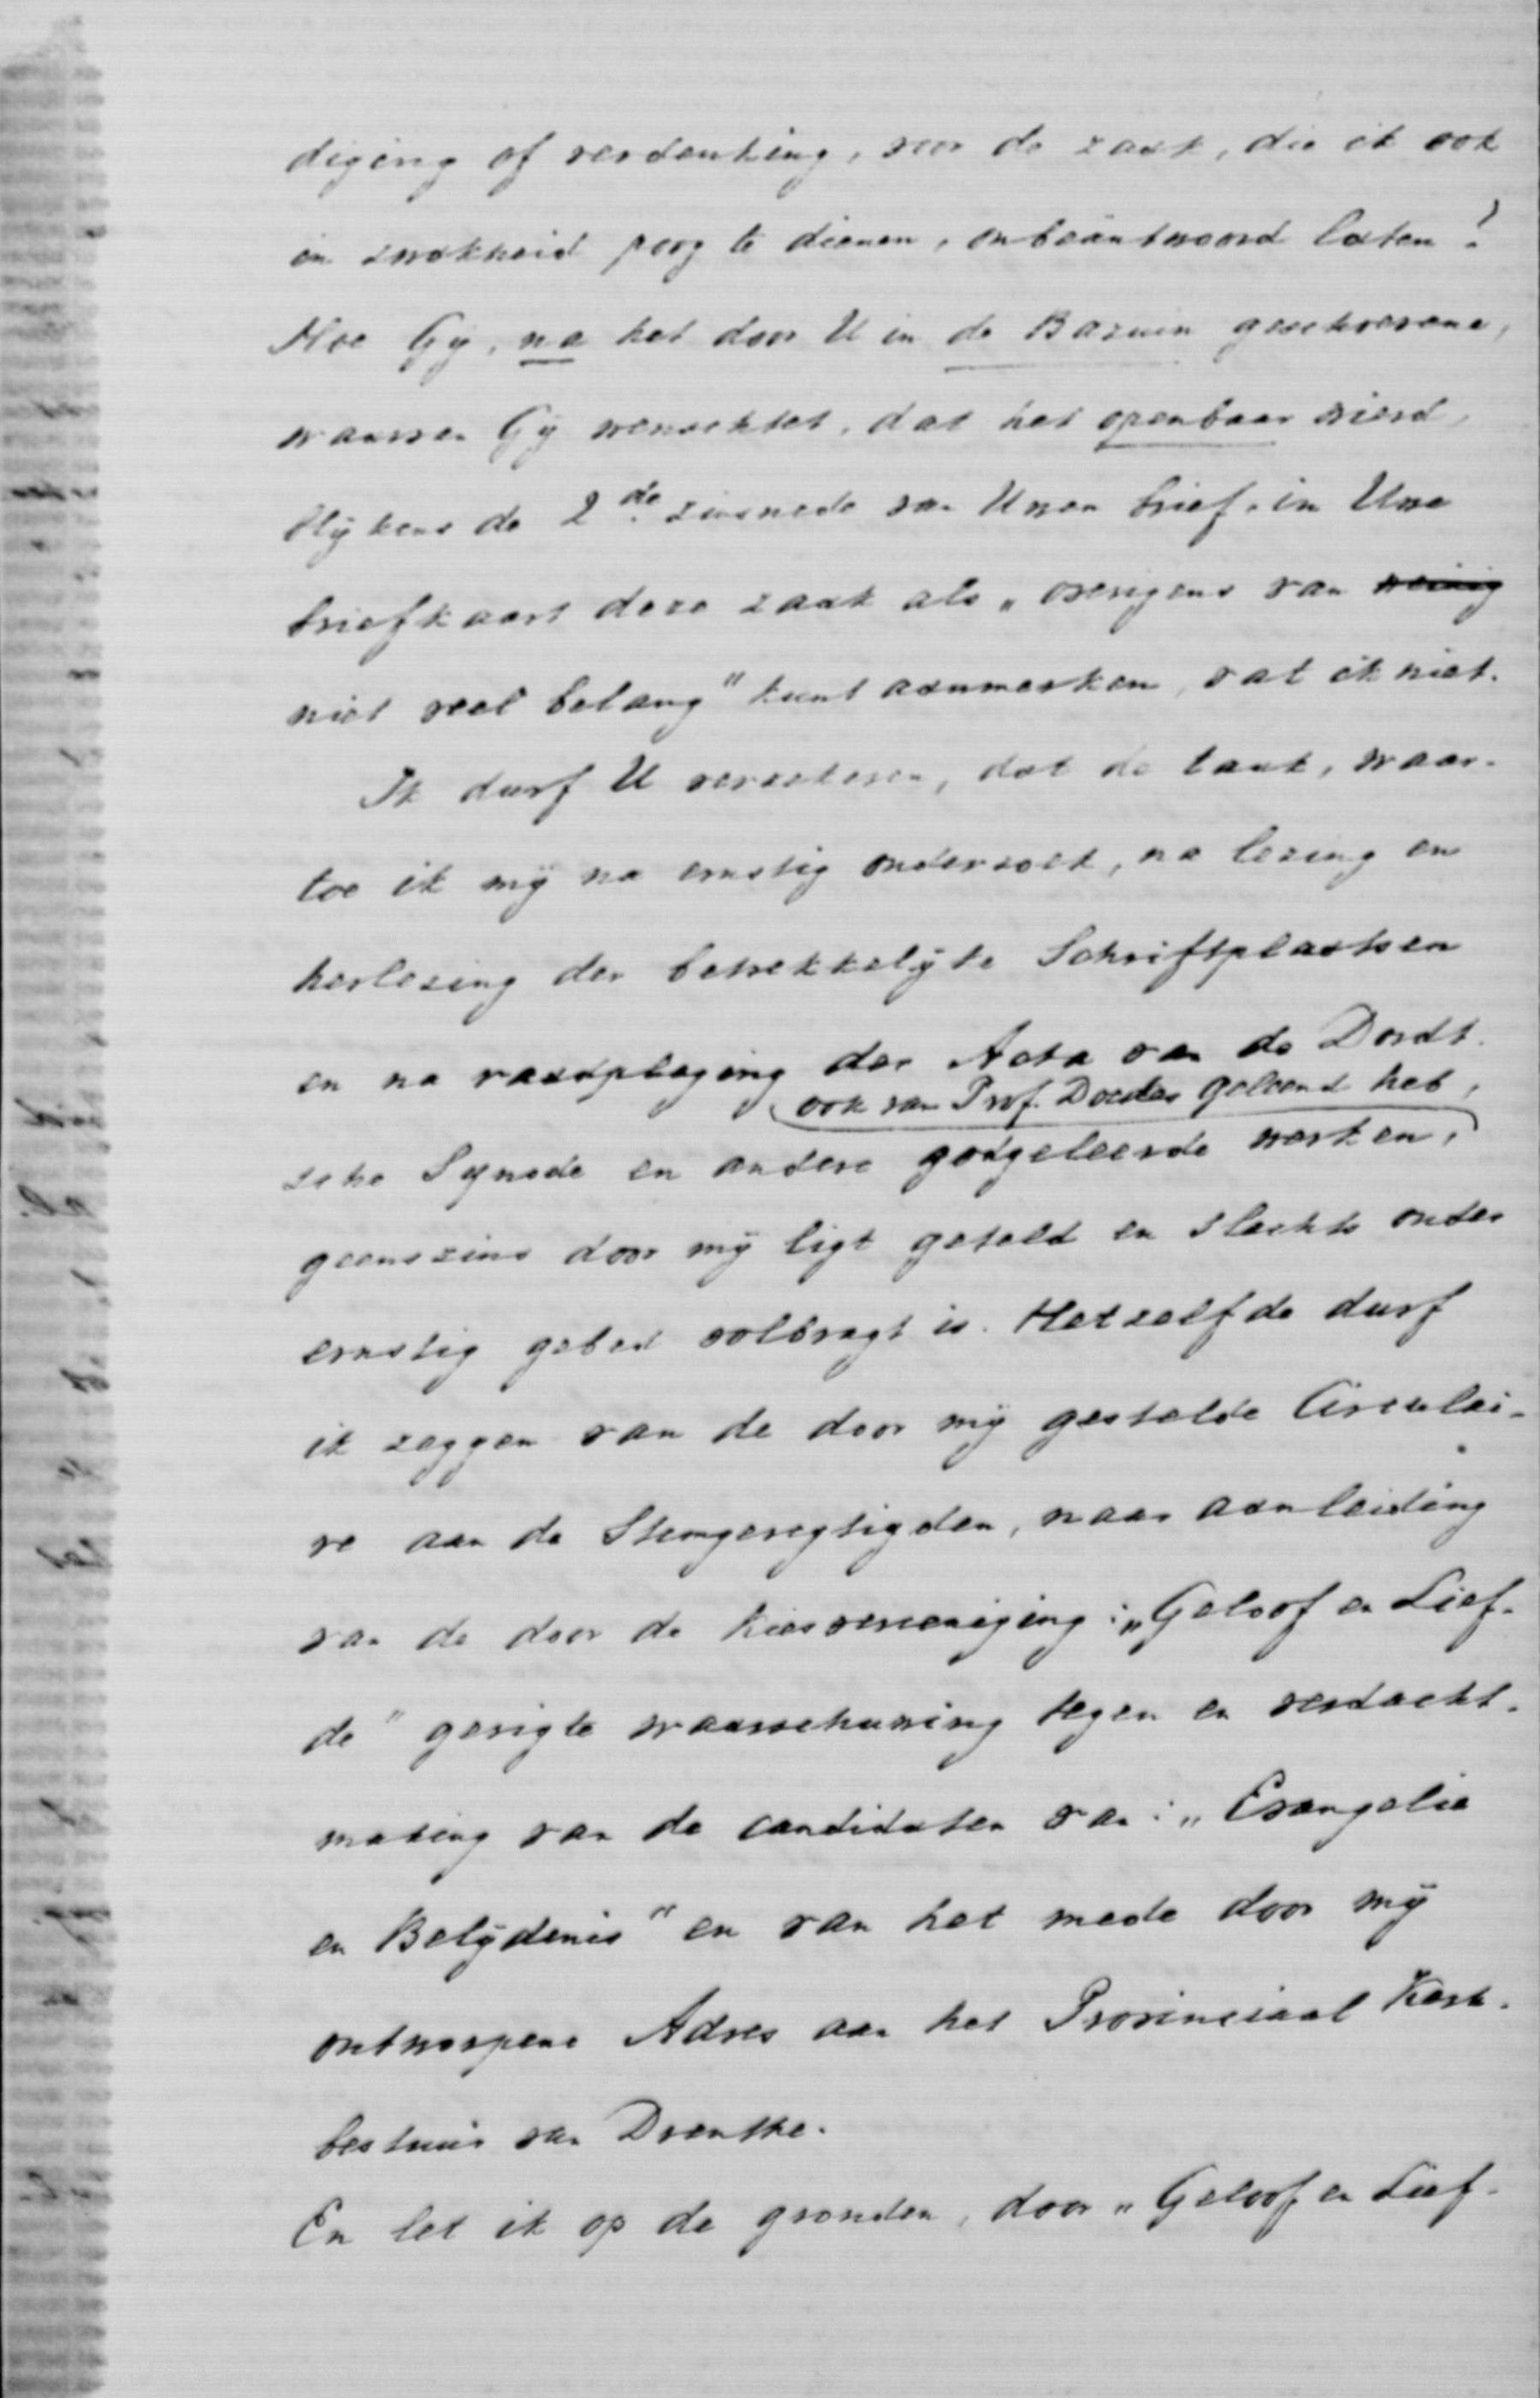 diging of verdenking, voor de zaak, die ik ook
in zwakheid poog te dienen, onbeäntwoord laten?
Hoe Gij, na het door U in de Bazuin geschrevene,
waarvan Gij wenschtet, dat het openbaar wierd,
blijkens de 2de zinsnede van Uwen brief, in Uwe
briefkaart deze zaak als „overigens van weinig
niet veel belang" kunt aanmerken, vat ik niet.
Ik durf U verzekeren, dat de taak, waar-
toe ik mij na ernstig onderzoek, na lezing en
herlezing der betrekkelijke Schriftplaatsen
en na raadpleging der Acta van de Dordt-
ook van Prof. Doedes geleend heb,
sche Synode en andere godgeleerde werken,
geenszins door mij ligt geteld en slechts onder
ernstig gebed volbragt is. Hetzelfde durf
ik zeggen van de door mij gestelde Circulai-
re aan de Stemgeregtigden, naar aanleiding
van de door de kiesvereeniging: „Geloof en Lief-
de" gerigte waarschuwing tegen en verdacht-
making van de candidaten van: „Evangelie
en Belijdenis" en van het mede door mij
ontworpene Adres aan het Provinciaal Kerk-
bestuur van Drenthe.
En let ik op de gronden, door „Geloof en Lief-